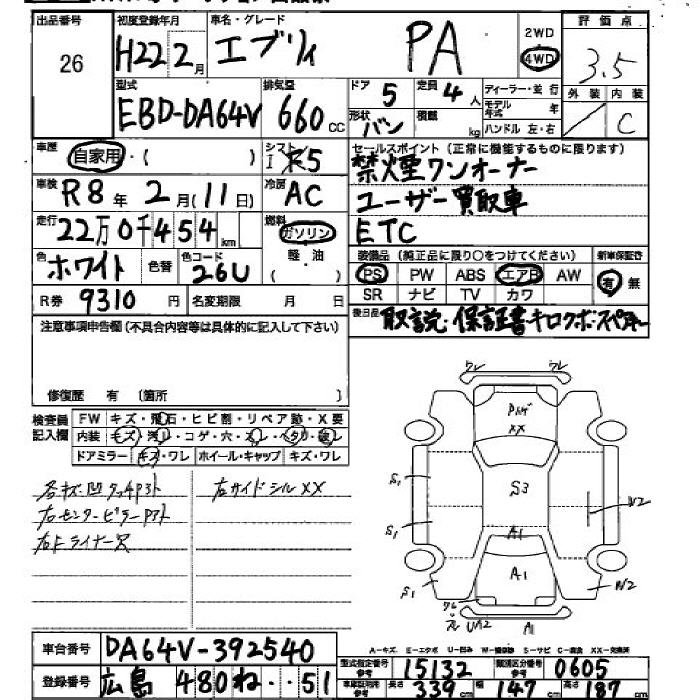 出品番号 初度登録年月 車名・グレード 評価点
26 H22 2月 エブリィ PA 2WD 4WD 3.5
型式 排気量 ドア 定員 ディーラー・並行 外装 内装
EBD-DA64V 660cc 5 4人 モデル年式 年 / C
形状 バン 積載 kg ハンドル 左・右
車歴 自家用・( ) シフト 5 セールスポイント (正常に機能するものに限ります)
禁煙ワンオーナー
車検 R8年2月(11日) 冷房 AC ユーザー買取車
走行 22万0千454km 燃料 ガソリン ETC
軽・油 装備品 (純正品に限り○をつけてください) 新車保証書
色 ホワイト 色替 色コード 26U PS PW ABS エアB AW 有・無
SR ナビ TV カワ
R券 9310円 名変期限 月 日 後日品 取説・保証書・キロクボ・スペアキー
注意事項申告欄 (不具合内容等は具体的に記入して下さい)
修復歴 有 (箇所 )
検査員記入欄 FW キズ・飛石・ヒビ割・リペア跡・X要
内装 キズ・汚レ・コゲ・穴・スレ・ヘタリ・破レ
ドアミラー キズ・ワレ ホイール・キャップ キズ・ワレ
各キズ凹タッチPヨト 右サイドシルXX
右センターピラーPヨト
右Fライナー欠
ワレ
XX
S1 S3 W2
S1 A1
S1 A1 W2
UA2 A1
A-キズ E-エクボ U-凹み W-補修跡 S-サビ C-腐食 XX-交換済
車台番号 DA64V-392540 型式指定番号 参考 15132 類別区分番号 参考 0605
登録番号 広島 480 ね ・・51 車庫証明用 参考 長さ 339cm 幅 147cm 高さ 187cm